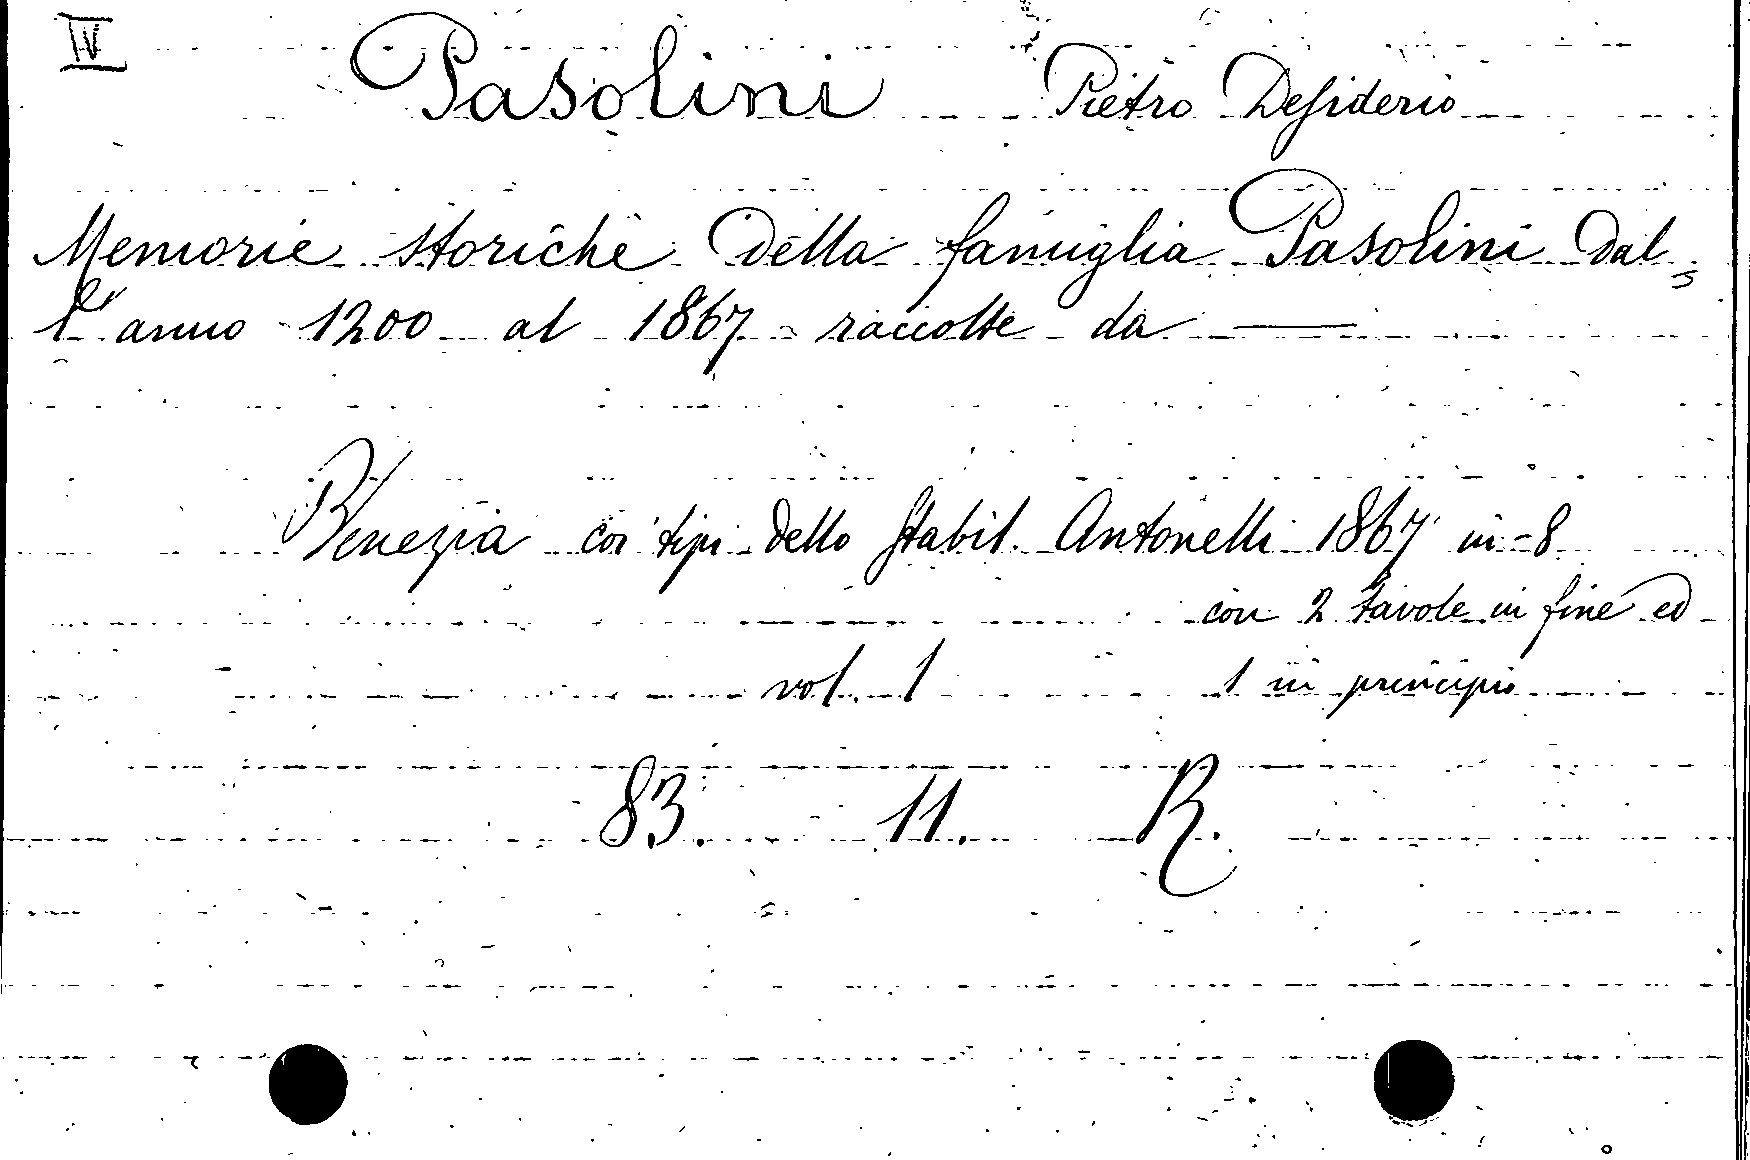 IV
Pasolini Pietro Desiderio
Memorie storiche della famiglia Pasolini dal
l'anno 1200 al 1867 raccolte da —
Venezia coi tipi dello Stabil. Antonelli 1867 in-8
con 2 tavole in fine ed
vol. 1 1 in principio
83. 11. R.